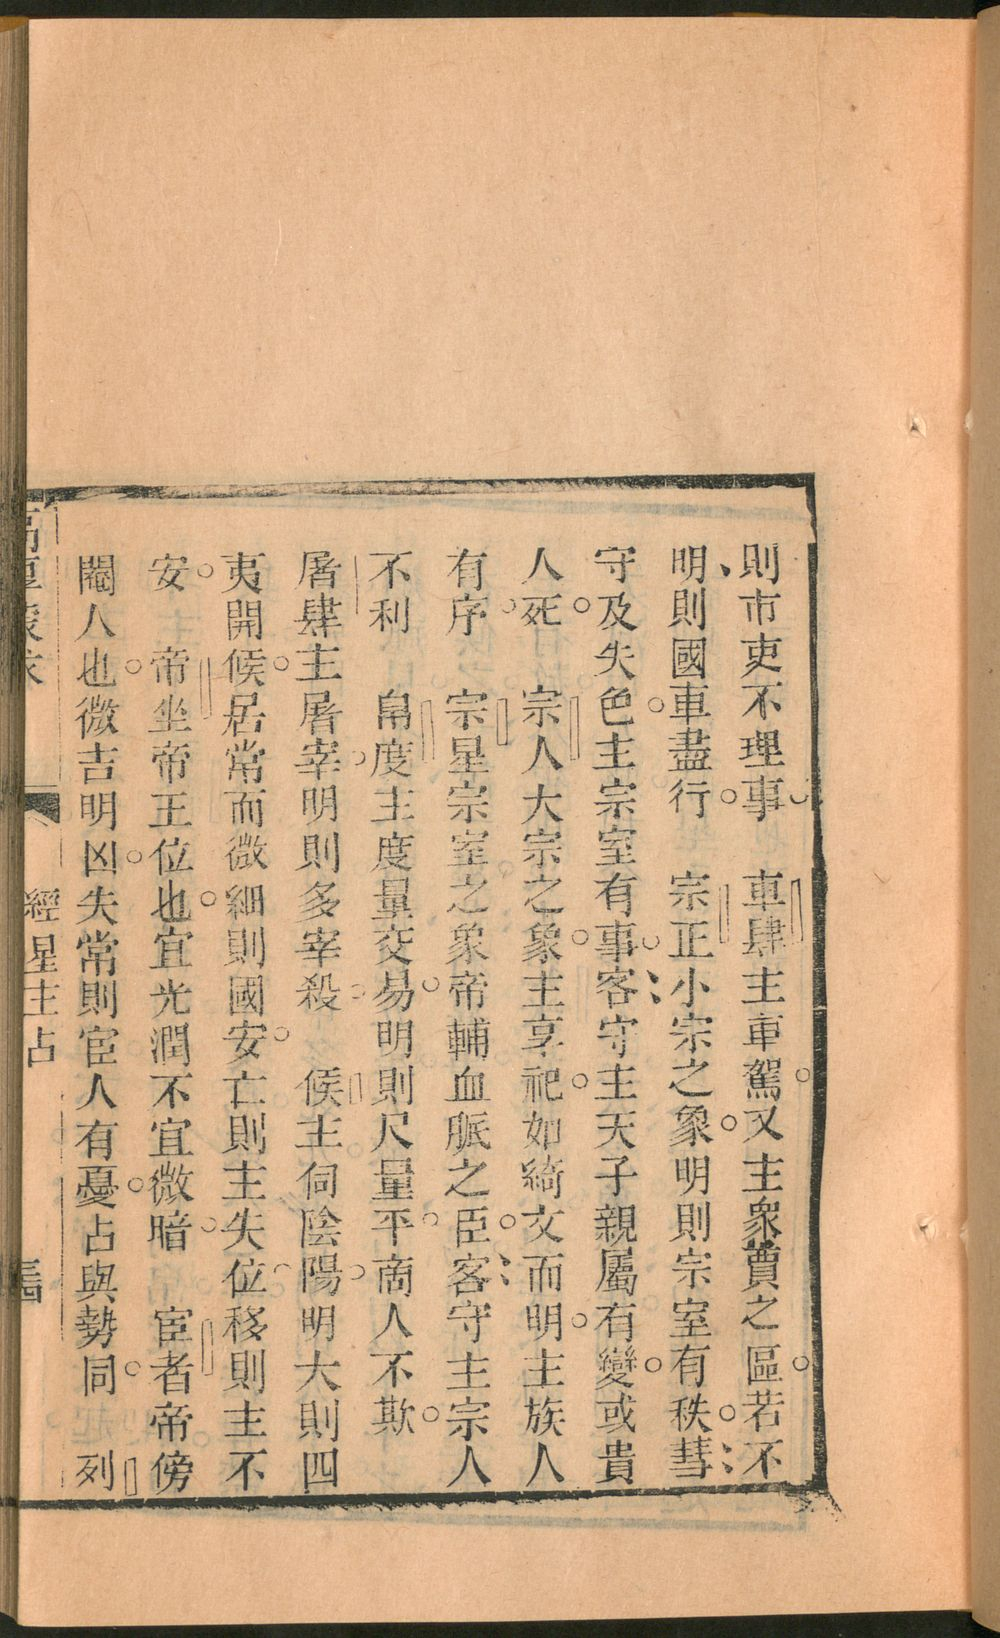 則市吏不理事　車肆主車駕又主衆賈之區若不
明則國車盡行　宗正小宗之象明則宗室有秩彗
守及失色主宗室有事客守主天子親屬有變或貴
人死　宗人大宗之象主享祀如綺文而明主族人
有序　宗星宗室之象帝輔血脈之臣客守主宗人
不利　帛度主度量交易明則尺量平商人不欺
屠肆主屠宰明則多宰殺　候主伺陰陽明大則四
夷開候居常而微細則國安亡則主失位移則主不
安　帝坐帝王位也宜光潤不宜微暗　宦者帝傍
閹人也微吉明凶失常則宦人有憂占與勢同　列
經星主占